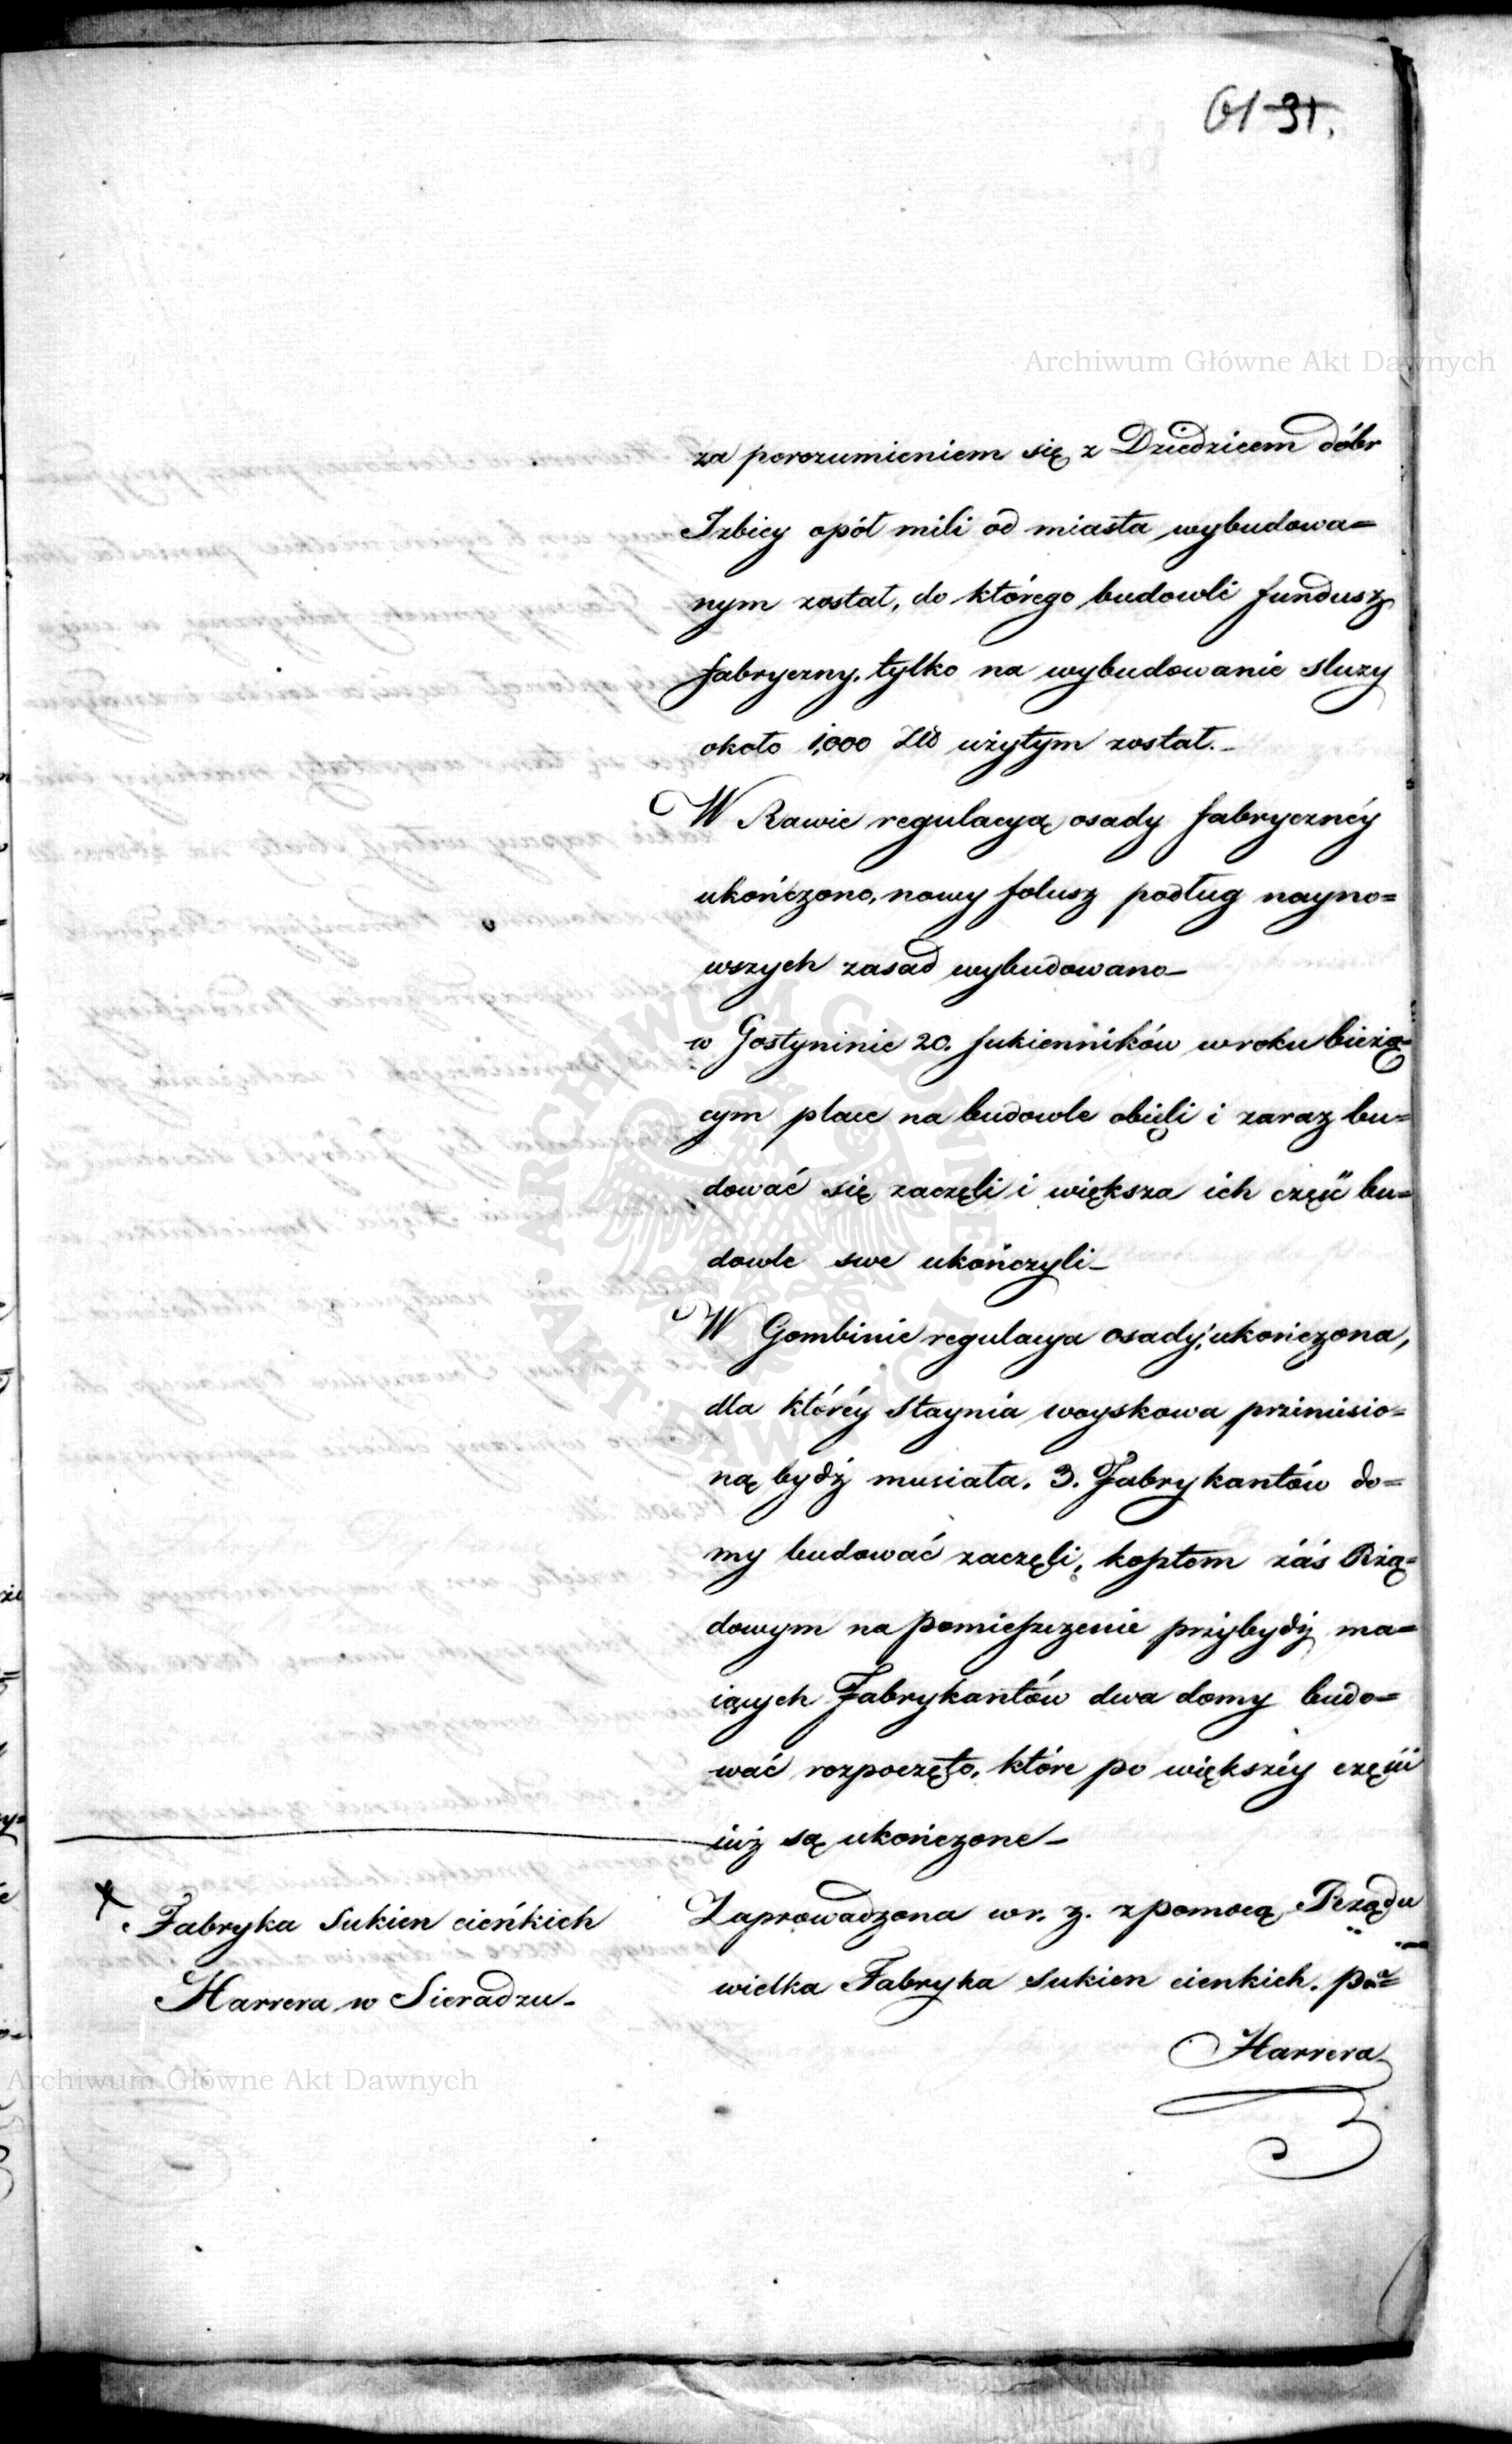 61 31.
Archiwum Główne Akt Dawnych
za porozumieniem się z Dziedzicem dóbr
Izbicy opół mili od miasta wybudowa=
nym został, do którego budowli fundusz
fabryczny, tylko na wybudowanie sluzy
około 1,000 Złl użytym został._
W Rawie regulacyą osady fabrycznéy
ukończono, nowy folusz podług nayno=
wszych zasad wybudowano_
w Gostyninie 20. sukienników w roku bieżą=
cym place na budowle obięli i zaraz bu=
dować się zaczęli i większa ich część bu=
dowle swe ukończyli_
W Gombinie regulacya osady, ukończona,
dla któréy staynia woyskowa przeniesio=
ną bydź musiała. 3. Fabrykantów do=
my budować zaczęli, kosztem zaś Rzą=
dowym na pomieszczenie przybydź ma=
iących Fabrykantów dwa domy budo=
wać rozpoczęto, które po większéy części
iuż są ukończone_
Fabryka Sukien cieńkich
Harrera w Sieradzu_
Zaprowadzona w r. z. z pomocą Rządu
wielka Fabryka sukien cienkich.
Harrera
Archiwum Główne Akt Dawnych
ARCHIWUM GŁÓWNE AKT DAWNYCH